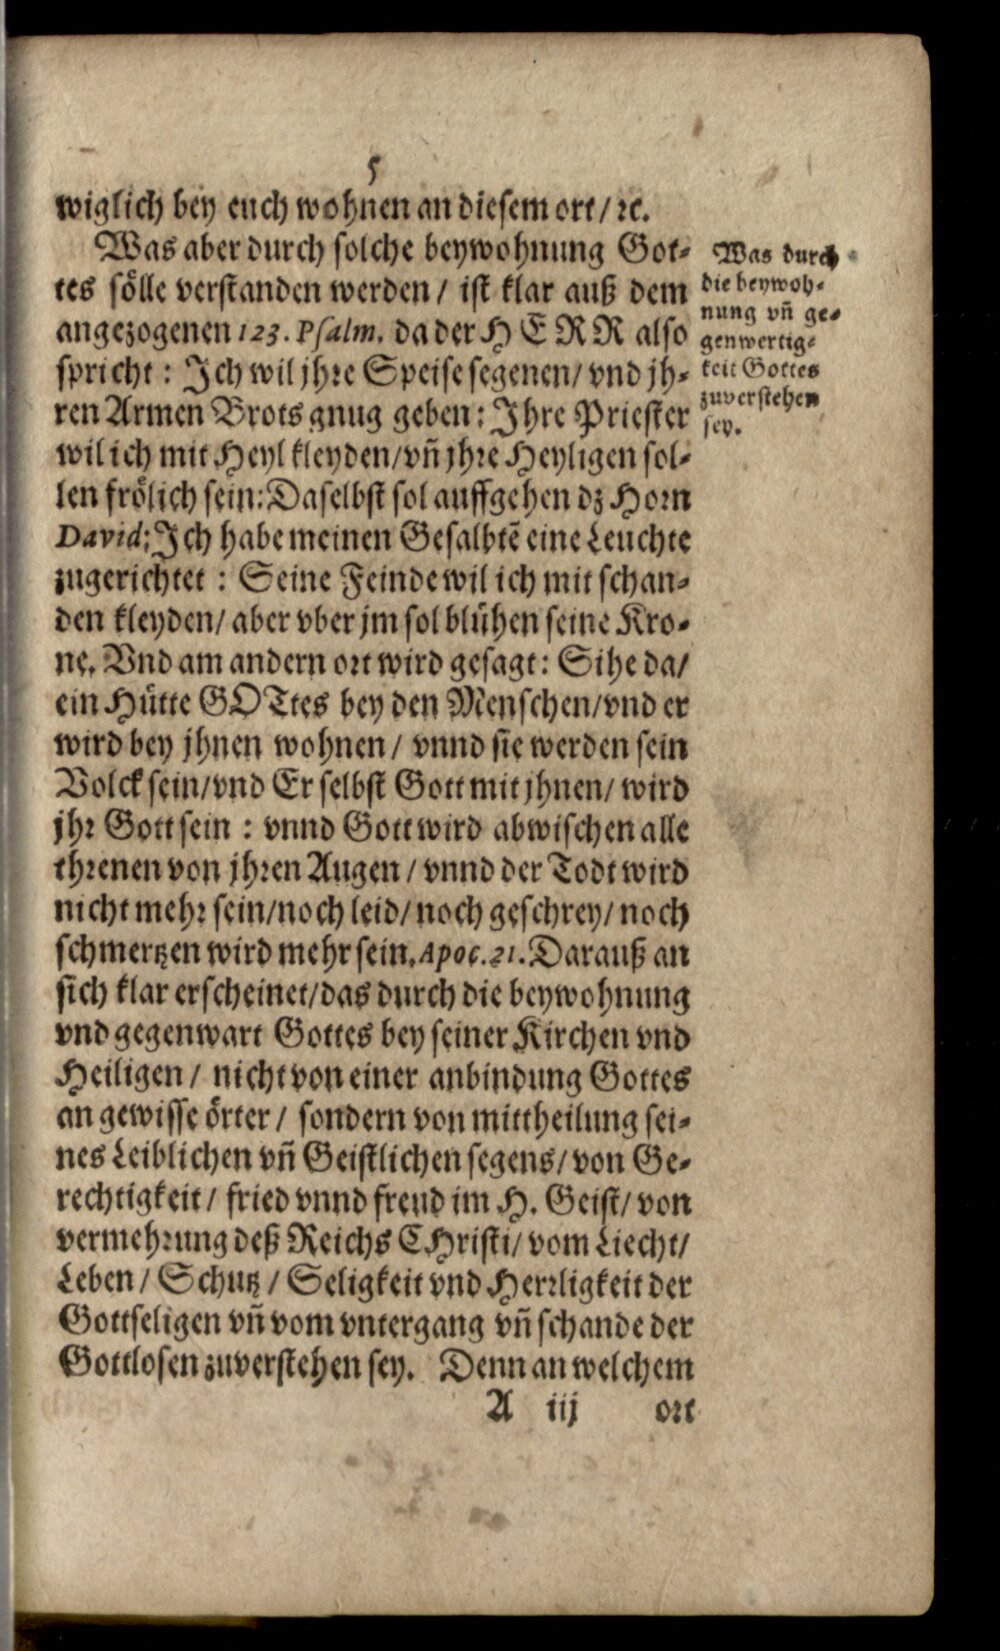 5
wiglich bey euch wohnen an diesem ort / ꝛc.
Was aber durch solche beywohnung Got-
tes soͤlle verstanden werden / ist klar auß dem
angezogenen 123. Psalm. da der HERR also
spricht: Ich wil jhre Speise segenen / vnd jh-
ren Armen Brots gnug geben: Ihre Priester
wil ich mit Heyl kleyden / vñ jhre Heyligen sol-
len froͤlich sein: Daselbst sol auffgehen dz Horn
David: Ich habe meinen Gesalbtẽ eine Leuchte
zugerichtet : Seine Feinde wil ich mit schan-
den kleyden / aber vber jm sol bluͤhen seine Kro-
ne. Vnd am andern ort wird gesagt: Sihe da /
ein Huͤtte GOTtes bey den Menschen / vnd er
wird bey jhnen wohnen / vnnd sie werden sein
Volck sein / vnd Er selbst Gott mit jhnen / wird
jhr Gott sein : vnnd Gott wird abwischen alle
threnen von jhren Augen / vnnd der Todt wird
nicht mehr sein / noch leid / noch geschrey / noch
schmertzen wird mehr sein. Apoc. 21. Darauß an
sich klar erscheinet / das durch die beywohnung
vnd gegenwart Gottes bey seiner Kirchen vnd
Heiligen / nicht von einer anbindung Gottes
an gewisse oͤrter / sondern von mittheilung sei-
nes Leiblichen vñ Geistlichen segens / von Ge-
rechtigkeit / fried vnnd freud im H. Geist / von
vermehrung deß Reichs CHristi / vom Liecht /
Leben / Schutz / Seligkeit vnd Herrligkeit der
Gottseligen vñ vom vntergang vñ schande der
Gottlosen zuverstehen sey. Denn an welchem
A iij ort
Was durch
die beywoh-
nung vñ ge-
genwertig-
keit Gottes
zuverstehen
sey.